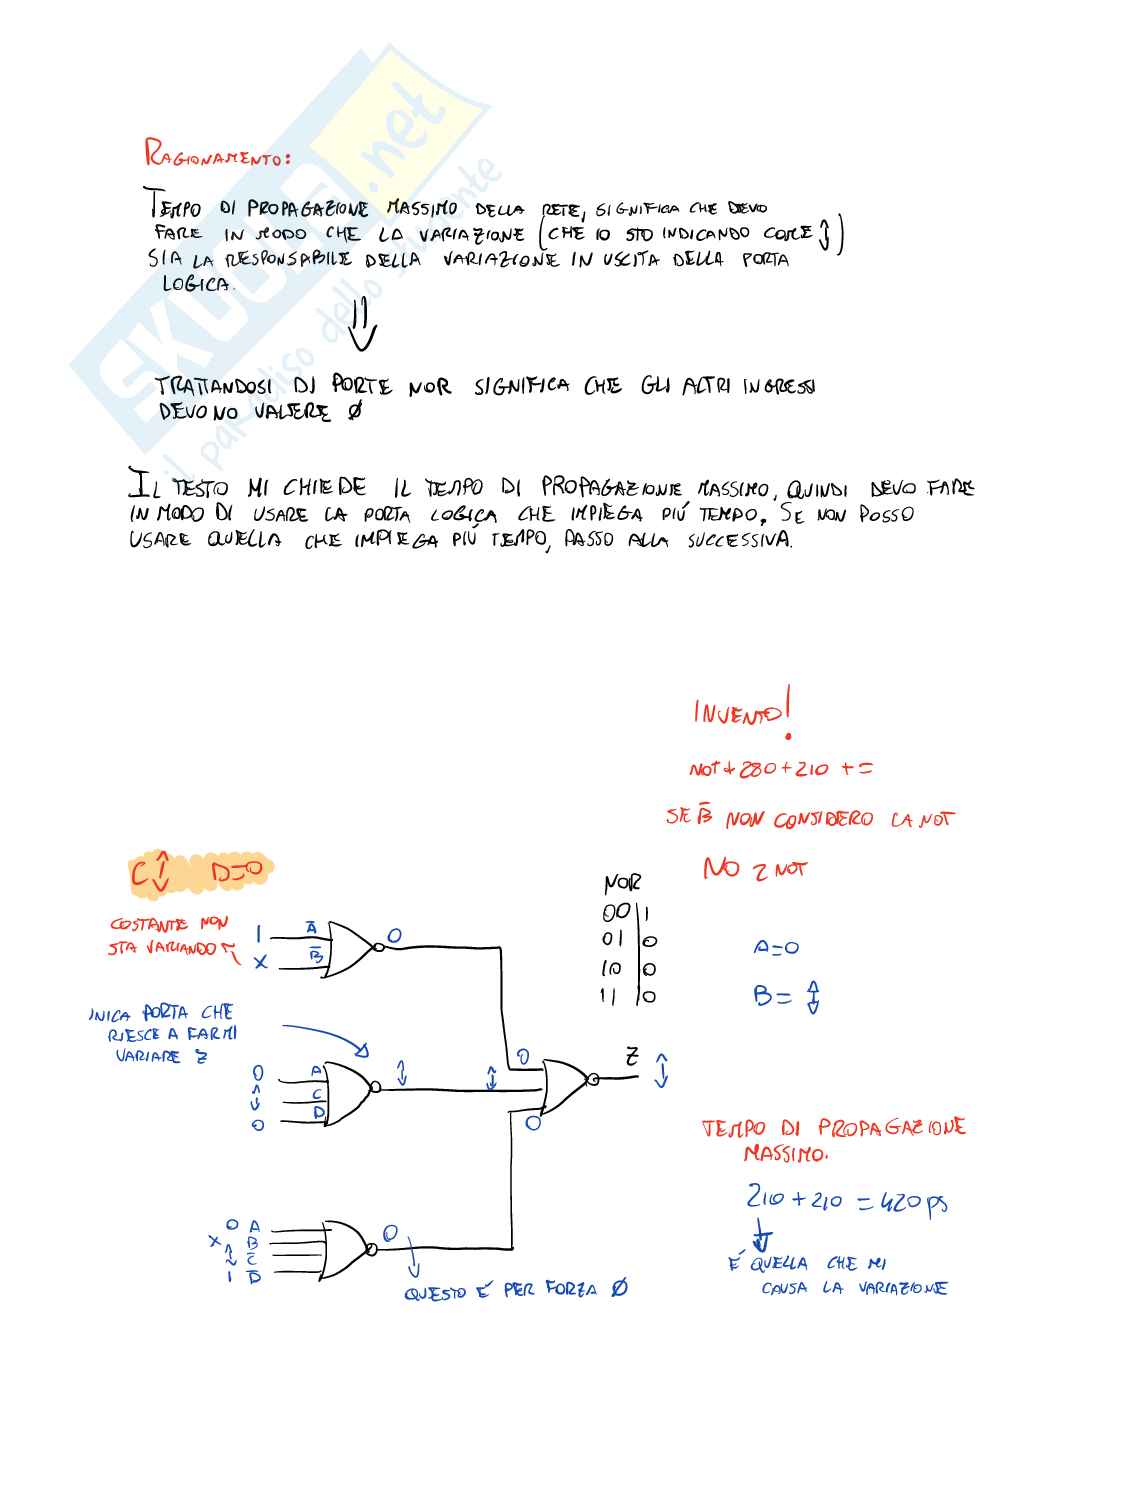 RAGIONAMENTO:
TEMPO DI PROPAGAZIONE MASSIMO DELLA RETE, SIGNIFICA CHE DEVO
FARE IN MODO CHE LA VARIAZIONE (CHE IO STO INDICANDO COME ↕)
SIA LA RESPONSABILE DELLA VARIAZIONE IN USCITA DELLA PORTA
LOGICA.
⇓
TRATTANDOSI DI PORTE NOR SIGNIFICA CHE GLI ALTRI INGRESSI
DEVONO VALERE Ø
IL TESTO MI CHIEDE IL TEMPO DI PROPAGAZIONE MASSIMO, QUINDI DEVO FARE
IN MODO DI USARE LA PORTA LOGICA CHE IMPIEGA PIÚ TEMPO. SE NON POSSO
USARE QUELLA CHE IMPIEGA PIÚ TEMPO, PASSO ALLA SUCCESSIVA.
SKUOLA.net
il paradiso dello studente
INVENTO!
NOT + 280 + 210 + =
SE B̅ NON CONSIDERO LA NOT
NO 2 NOT
C ↕ D=0
COSTANTE NON
STA VARIANDO
1 A̅ 0
X B̅
NOR
00 | 1
01 | 0
10 | 0
11 | 0
A=0
B= ↕
INICA PORTA CHE
RIESCE A FARMI
VARIARE Z
0 A ↕ ↕ 0 Z ↕
↕ C
0 D 0
TEMPO DI PROPAGAZIONE
MASSIMO.
210 + 210 = 420 ps
É QUELLA CHE MI
CAUSA LA VARIAZIONE
0 A 0
X B
↕ C̅
1 D̅
QUESTO É PER FORZA Ø